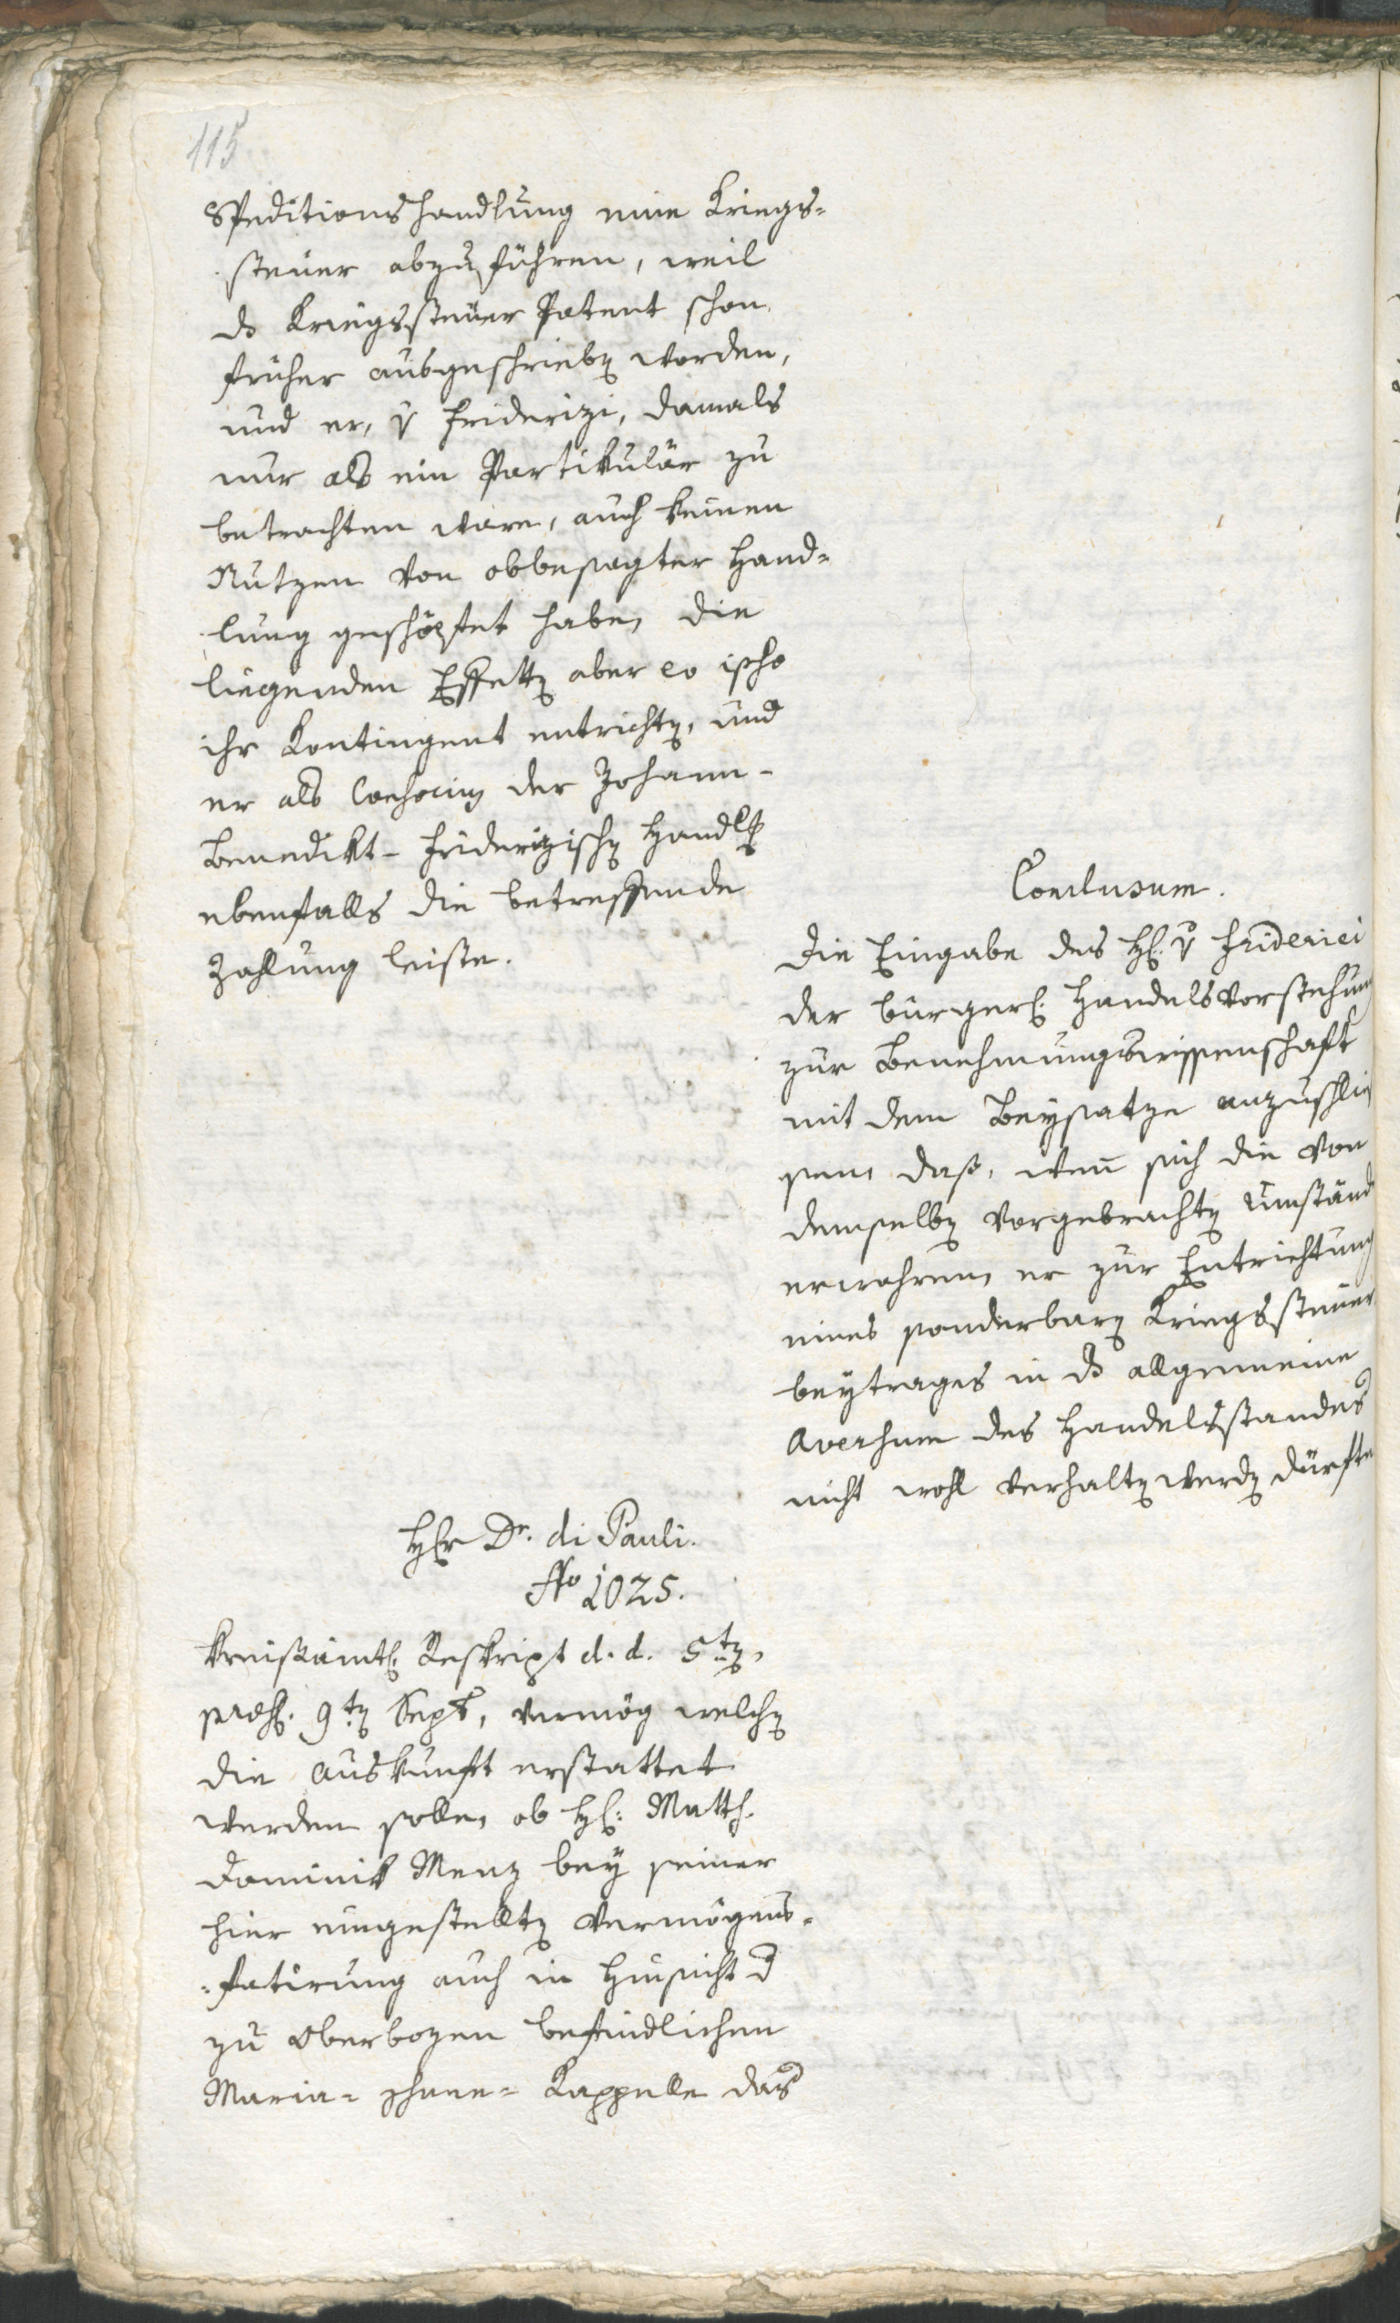 115
Speditionshandlung eine Kriegs=
steuer abzuführen, weil
ds Kriegssteuer Patent schon
früher ausgeschriebn worden,
und er, v Friderizi, damals
nur als ein Partikulär zu
betrachten ware, auch keinen
Nutzen von obbesagter Hand=
lung geschöpfet habe, die
liegenden Effektn aber eo ipso
ihr Kontingent entrichtn, und
er als Consocius der Johann-
Benedikt- Friderizischn Handlg
ebenfalls die betreffende
Zahlung leiste.
Conclusum.
Die Eingabe des H. v Friderici
der bürgerl. Handelsvorstehung
zur Benehmungswissenschaft
mit dem Beysatze anzuschlie
sen, daß, wen̄ sich die von
demselbn vorgebrachtn Umständ
erwahren, er zur Entrichtung
eines sonderbarn Kriegssteuer
beytrages in ds allgemeine
Aversum des Handelsstandes
nicht wohl verhaltn werdn dürfte
Hr Dr. di Pauli.
No 1025.
Kreisämtl. Reskript d. d. 5tn,
præs. 9tn Sept, vermög welchn
die Auskunft erstattet
werden solle, ob H: Matth.
Dominik Menz bey seiner
hier eingestelltn Vermögens=
=fatirung auch in Hinsicht d
zu Oberbozen befindlichen
Maria= Schnee= Kappelle das